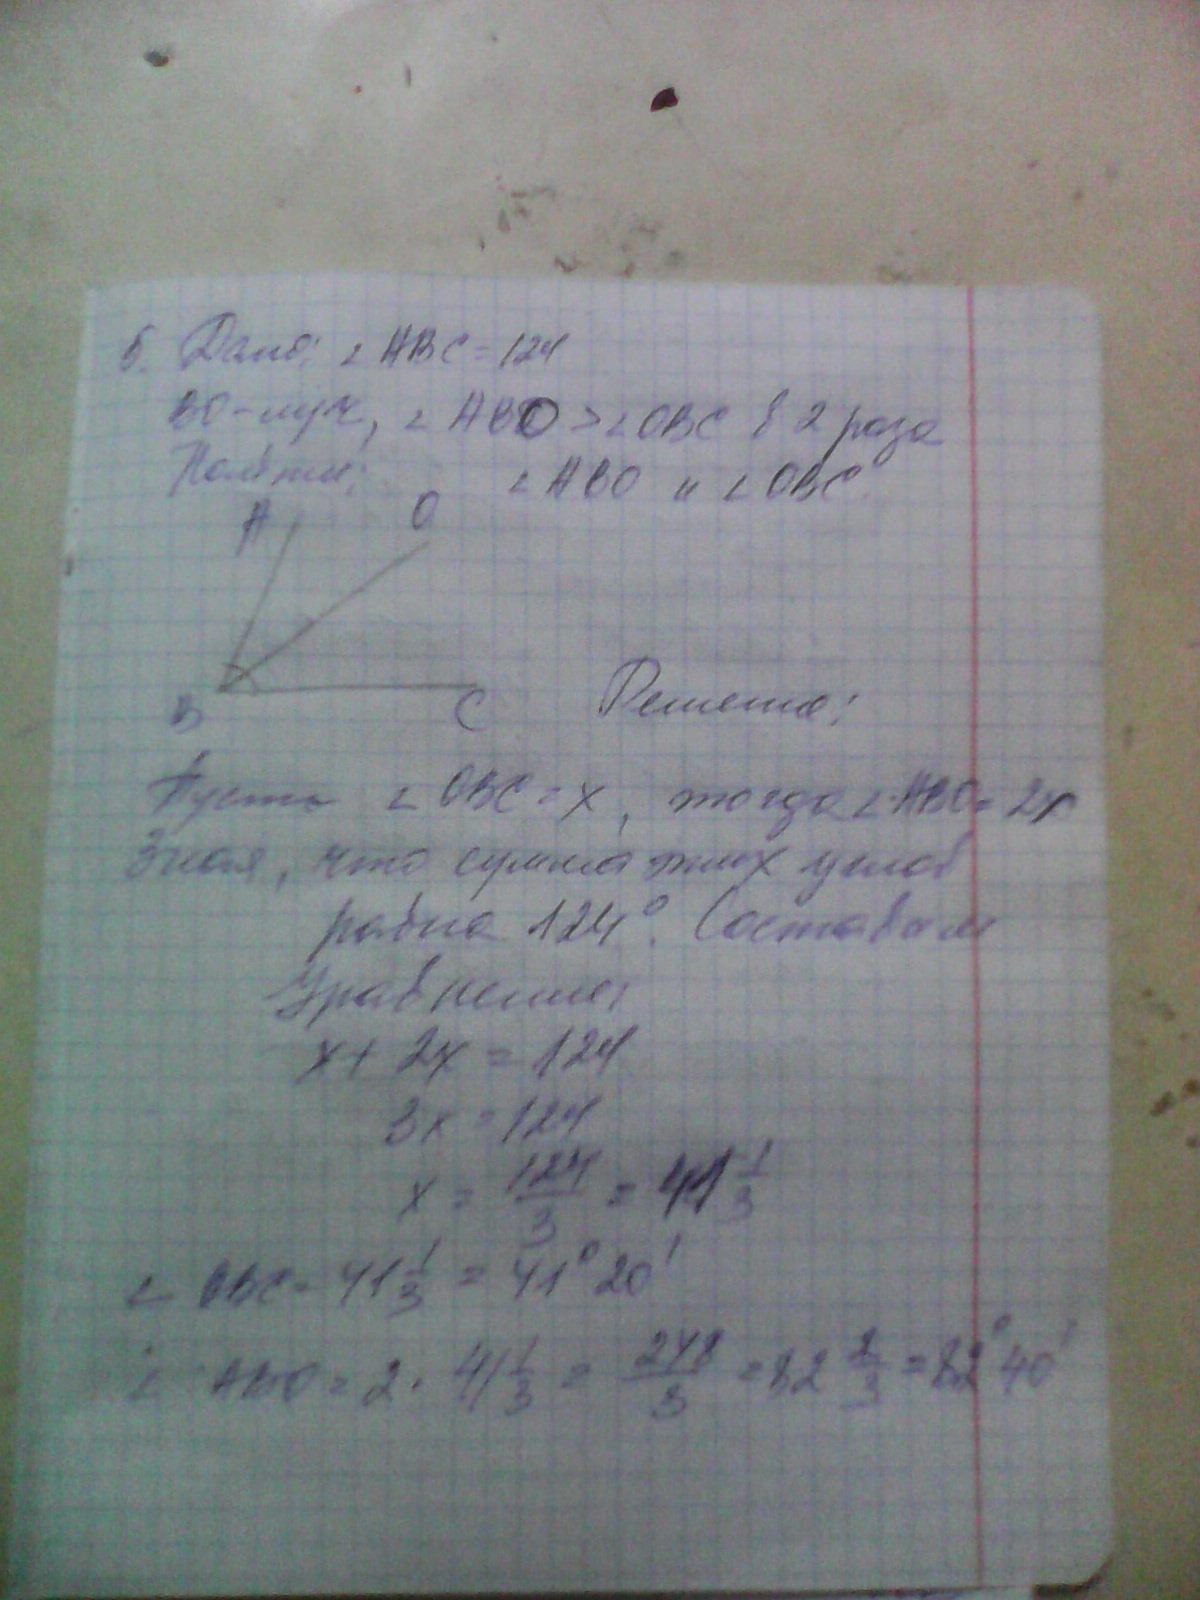 б. Дано: ∠ABC = 124
BO-луч, ∠ABO > ∠OBC в 2 раза
Найти: ∠ABO и ∠OBC
A O
B C Решение:
Пусть ∠OBC = x, тогда ∠ABO = 2x
Зная, что сумма этих углов
равна 124°. Составим
Уравнение:
x + 2x = 124
3x = 124
x = 124/3 = 41 1/3
∠ OBC = 41 1/3 = 41° 20'
∠ ABO = 2 · 41 1/3 = 248/3 = 82 2/3 = 82° 40'